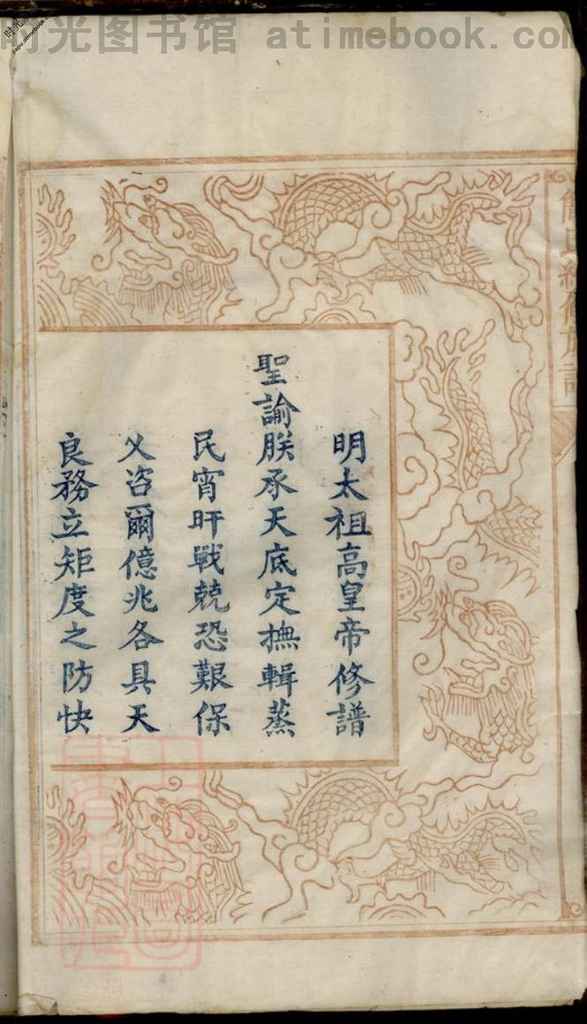 时光图书馆 atimebook.com
明太祖高皇帝修譜
聖諭朕承天底定撫輯蒸
民宵旰戰兢恐艱保
乂咨爾億兆各具天
良務立矩度之防快